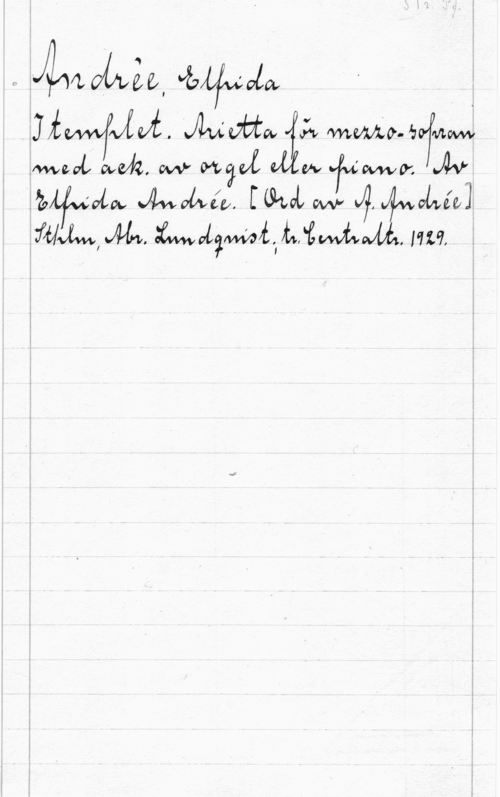 Andrée, Elfrida
I templet. Arietta för mezzo-sopran
med ack. av orgel eller piano. Av
Elfrida Andrée. [Ord av A. Andrée]
Sthlm, Abr. Lundquist, tr. Centraltr. 1929.